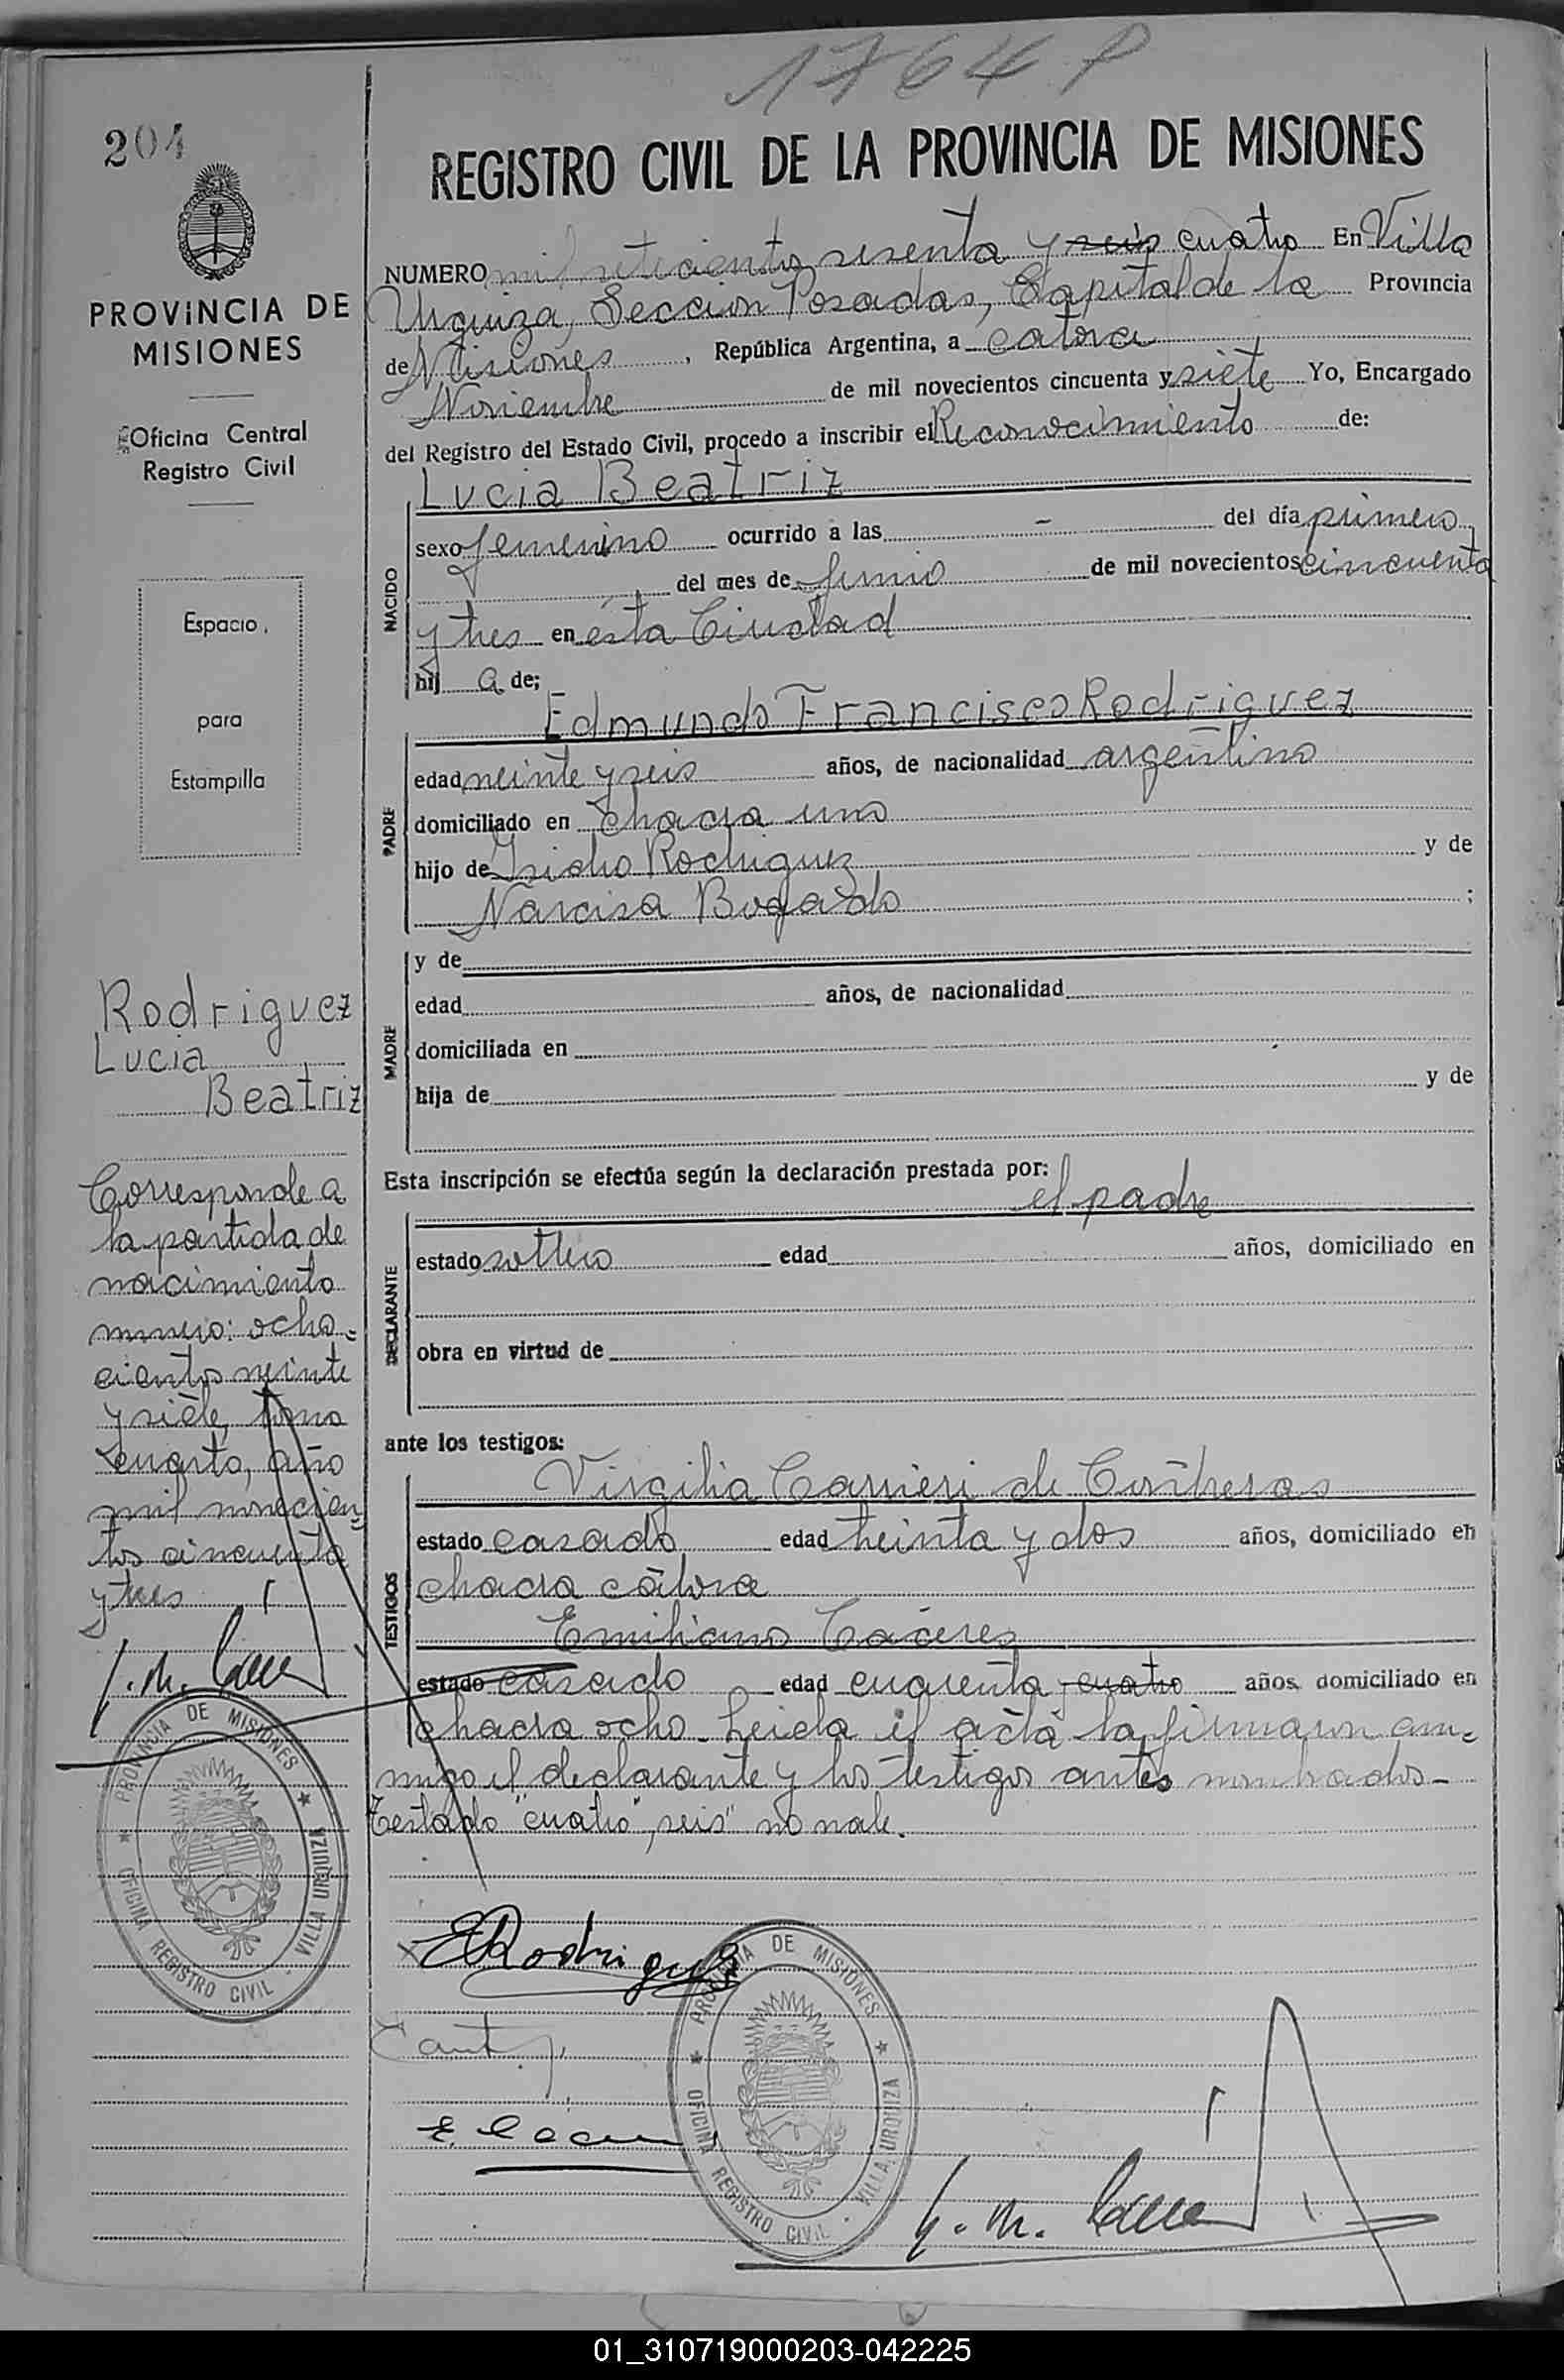 1764 P
204
REGISTRO CIVIL DE LA PROVINCIA DE MISIONES
PROVINCIA DE
MISIONES
Oficina Central
Registro Civil
Espacio
para
Estampilla
Rodriguez
Lucia
Beatriz
Corresponde a
la partida de
nacimiento
numero: ocho-
cientos veinte
y siete, tomo
cuarto, año
mil novecien-
tos cincuenta
y tres
PROVINCIA DE MISIONES
OFICINA REGISTRO CIVIL - VILLA URQUIZA
NUMERO mil setecientos sesenta y seis cuatro En Villa
Urquiza, Seccion Posadas, Capital de la Provincia
de Misiones, República Argentina, a catorce
Noviembre de mil novecientos cincuenta y siete Yo, Encargado
del Registro del Estado Civil, procedo a inscribir el Reconocimiento de:
Lucia Beatriz
NACIDO
sexo femenino ocurrido a las - del día primero
del mes de Junio de mil novecientos cincuenta
y tres en ésta Ciudad
hij a de;
Edmundo Francisco Rodriguez
PADRE
edad veinte y seis años, de nacionalidad argentino
domiciliado en chacra uno
hijo de Isidro Rodriguez y de
Narcisa Bogado ;
MADRE
y de
edad años, de nacionalidad
domiciliada en
hija de y de
Esta inscripción se efectúa según la declaración prestada por:
el padre
DECLARANTE
estado soltero edad años, domiciliado en
obra en virtud de
ante los testigos:
TESTIGOS
Virgilia Carrieri de Contreras
estado casado edad treinta y dos años, domiciliado en
chacra catorce
Emiliano Cáceres
estado casado edad cuarenta y cuatro años, domiciliado en
chacra ocho. Leida el acta la firmaron con-
migo el declarante y los testigos antes nombrados-
Testado "cuatro", seis" no vale.
ERodriguez
PROVINCIA DE MISIONES
OFICINA REGISTRO CIVIL - VILLA URQUIZA
01_310719000203-042225